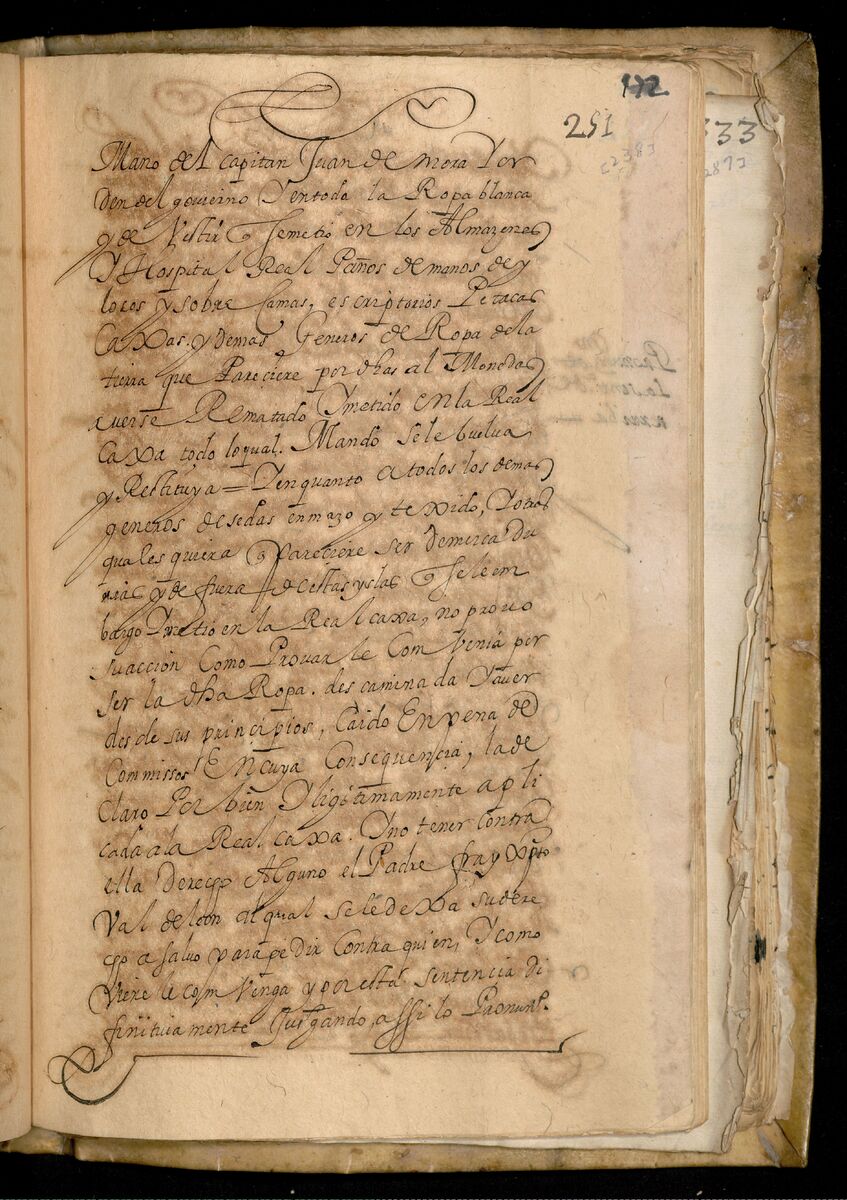 172
251
333
c2383
2893
Mano del capitan Juan de mora Y or
den del gouierno Y en toda la Ropa blanca
y de Vestir q Se metio en los Almazenes
Y Hospital Real Paños de manos, de y
locos y sobre Camas, escriptorios Petacas
Caxas. y demas Generos de Ropa de la
tierra que Pareciere por dhas al Monedas
auerse Rematado Y metido en la Real
Caxa todo lo qual. Mando se le buelua
y Restituya = Y en quanto a todos los demas
generos de sedas en mazo y texido, Y otras
quales quiera q Pareciere ser de mercadu
rias y de fuera de estas yslas q Se le em
bargo Y metio en la Real caxa, no prouo
su accion Como Prouar le Com Venia por
ser la dha Ropa. des camina da Y auer
des de sus principios, Caido En pena de
Commissos En cuya Consequencia, la de
Claro Por bien Y ligitimamente apli
cada a la Real caxa. Y no tener contra
ella Derecho Alguno el Padre fray Xpto
Val de leon al qual se le dexa su dere
cho a salvo para pedir Contra quien, Y como
Viere le com Venga y por esta sentencia di
finitiuamente Jusgando, assi lo Pronun.